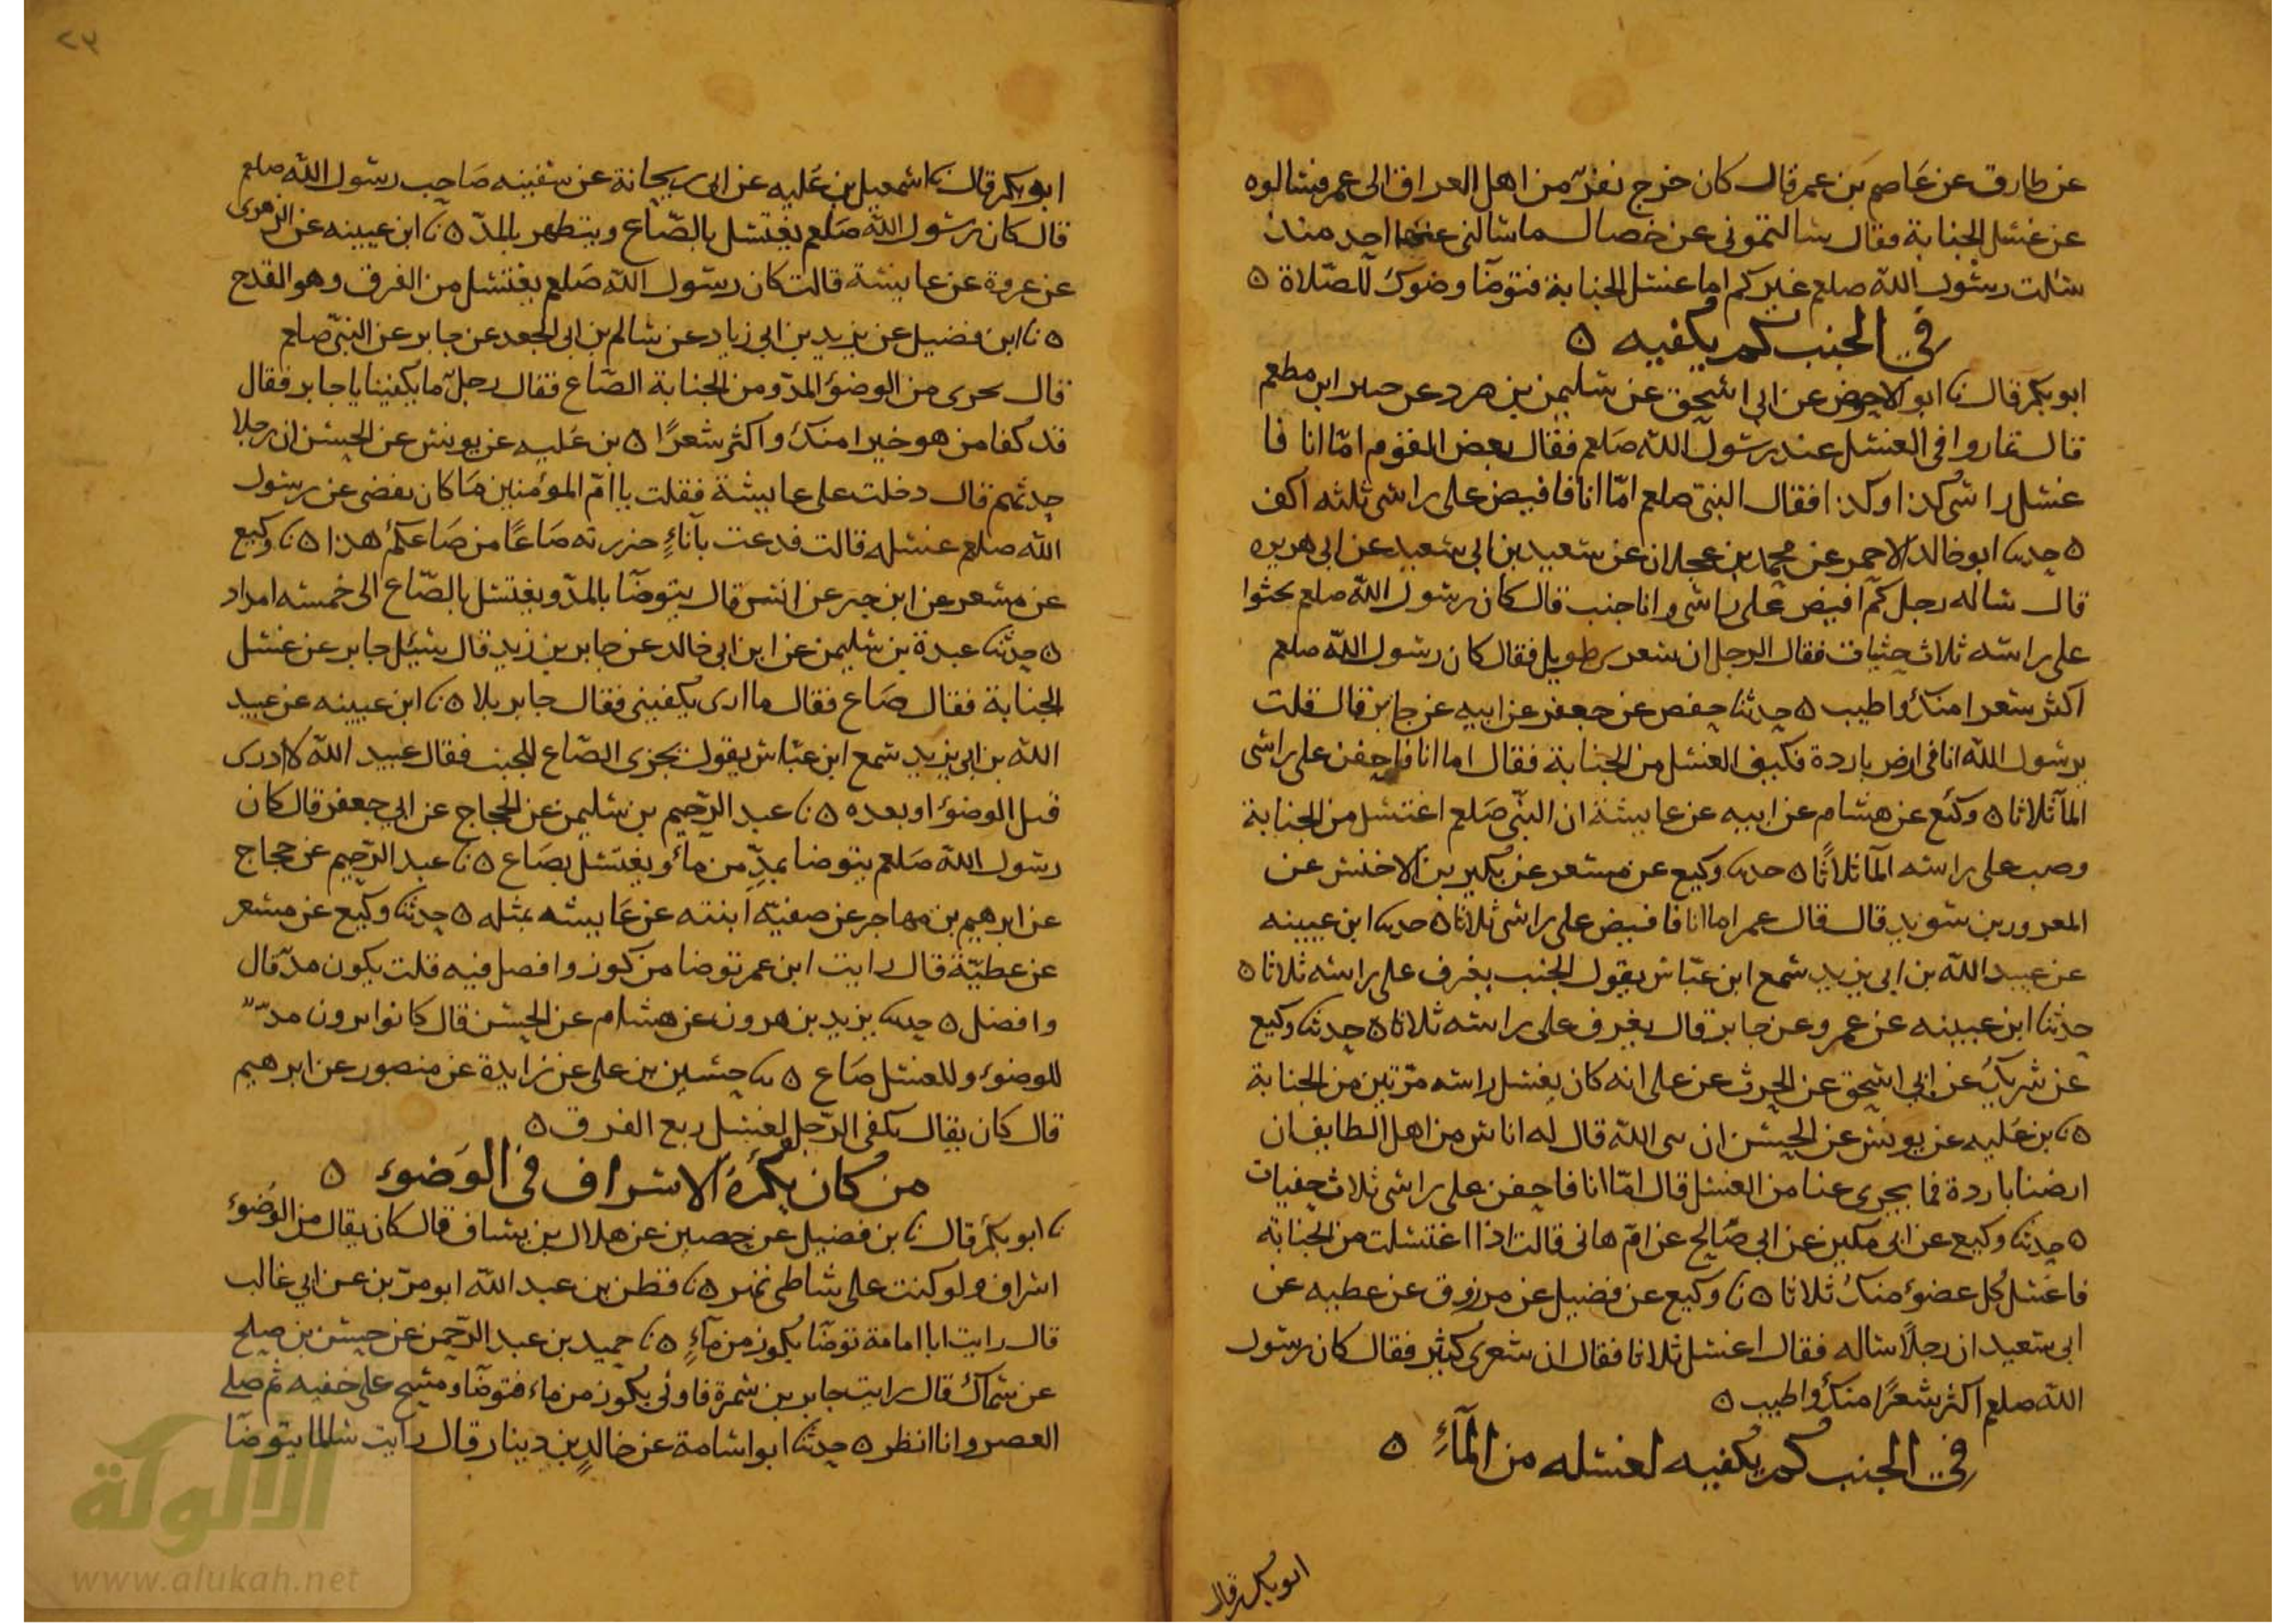 عن طارق عن عاصم بن عمر قال كان خرج نفر من اهل العراق الى عمر فسالوه
عن غسل الجنابة فقال سالتموني عن خصال ما سالني عنها احد منذ
سالت رسول الله صلعم غيركم اما غسل الجنابة فتوضا وضوك للصلاة ه
في الجنب كم يكفيه ه
ابو بكر قال نا ابو الاحوص عن ابى اسحق عن سليمن بن صرد عن جبير ابن مطعم
قال تماروا في الغسل عند رسول الله صلعم فقال بعض القوم امّا انا فا
غسل راسي كذا وكذا فقال النبي صلعم امّا انا فافيض على راسي ثلثه اكف
ه حدثنا ابو خالد الاحمر عن محمد بن عجلان عن سعيد بن ابي سعيد عن ابي هريره
قال ساله رجل كم افيض على راسي وانا جنب قال كان رسول الله صلعم يحثوا
على راسه ثلاث حثيات فقال الرجل ان شعري طويل فقال كان رسول الله صلعم
اكثر شعرا منك واطيب ه حدثنا حفص عن جعفر عن ابيه عن جابر قال قلت
يرسول الله انا في ارض باردة فكيف الغسل من الجنابة فقال اما انا فاحفن على راسي
المآ ثلاثا ه وكيع عن هشام عن ابيه عن عايشة ان النبّي صَلعم اغتسل من الجنابة
وصب على راسه المآ ثلاثًا ه حدثنا وكيع عن مسعر عن بكير بن الاخنس عن
المعرور بن سويد قال قال عمر اما انا فافيض على راسي ثلاثا ه حدثنا ابن عيينه
عن عبيد الله بن ابي يزيد سمع ابن عبّاس يقول الجنب يغرف على راسه ثلاثا ه
حدثنا ابن عيينه عن عمرو عن جابر قال يغرف على راسه ثلاثا ه حدثنا وكيع
عن شريك عن ابي اسحق عن الحرث عن على انه كان يغسل راسه مرّتين من الجنابة
ه نا بن عُليه عن يونس عن الحسن ان نبي الله قال له اناس من اهل الطايف ان
ارضنا باردة فما يجرى عنا من الغسل قال امّا انا فاحفن على راسي ثلاث حفنات
ه حدثنا وكيع عن ابي مكين عن ابي صَالح عن امّ هانى قالت اذا اغتسلت من الجنابة
فاغسل كل عضو منك ثلاثا ه نا وكيع عن فضيل عن مرزوق عن عطيه عن
ابى سعيد ان رجلًا ساله فقال اغسل ثلاثا فقال ان شعرى كثير فقال كان رسول
الله صلعم اكثر شعرًا منك واطيب ه
في الجنب كم يكفيه لغسله من المآءِ ه
ابو بكر قال
ابو بكر قال نا اسمعيل بن عُليه عن ابي ريحانة عن سفينه صَاحب رسول الله صلعم
قال كان رسول الله صَلعم يغتسل بالصّاع ويتطهر بالمدّ ه نا ابن عيينه عن الزهرى
عن عروة عن عايشة قالت كان رسول الله صَلعم يغتسل من الفرق وهو القدح
ه نا ابن فضيل عن يزيد بن ابى زياد عن سالم بن ابى الجعد عن جابر عن النبّي صلعم
قال يجرى من الوضوُ المدّ ومن الجنابة الصّاع فقال رجل ما يكفينا يا جابر فقال
قد كفا من هو خيرا منك واكثر شعرًا ه بن عُليه عن يونس عن الحسن ان رجلا
حدثهم قال دخلت على عايشة فقلت يا امّ المؤمنين مَا كان يقضى عن رسول
الله صلعم غسله قالت فدعت بآناءٍ حزرته صَاعًا من صَاعكم هذا ه نا وكيع
عن مسعر عن ابن جبر عن انس قال يتوضآ بالمدّ ويغتسل بالصّاع الى خمسه امداد
ه حدثنا عبدة بن سليمن عن ابن ابى خالد عن جابر بن زيد قال سئل جابر عن غسل
الجنابة فقال صَاع فقال ما ارى يكفينى فقال جابر بلا ه نا ابن عيينه عن عبيد
الله بن ابى يزيد سمع ابن عبّاس يقول يجزى الصّاع للجنب فقال عبيد الله لا ادرى
قبل الوضوُ او بعده ه نا عبد الرّحيم بن سليمن عن الحجاج عن ابي جعفر قال كان
رسول الله صَلعم يتوضا بمدّ من مآء ويغتسل بصَاع ه نا عبد الرّحيم عن حجاج
عن ابرهيم بن مهاجر عن صفيّه ابنته عن عَايشه بمثله ه حدثنا وكيع عن مسعر
عن عطيّة قال رايت ابن عمر توضا من كوز وافضل فيه قلت يكون مدّ قال
وافضل ه حدثنا يزيد بن هرون عن هشام عن الحسن قال كانوا يرون مدّ
للوضوء وللغسل صَاع ه نا حسين بن على عن زايدة عن منصور عن ابرهيم
قال كان يقال يكفى الرّجل لغسله ربع الفرق ه
من كان يكره الاسراف في الوَضوء ه
نا ابو بكر قال نا بن فضيل عن حصين عن هلال بن يساف قال كان يقال من الوُضوء
اسراف ولو كنت على شاطى نهر ه نا قطن بن عبد الله ابو مرّي عن ابي غالب
قال رايت ابا امامة توضّا بكوز من مآءٍ ه نا حميد بن عبد الرّحمن عن حسن بن صلح
عن سماك قال رايت جابر بن سمرة فاوتي بكوز من ماء فتوضّا ومسح على خفيه ثم صلى
العصر وانا انظر ه حدثنا ابو اسامة عن خالدٍ بن دينار قال رايت سالما يتوضّا
٢٧
الألوكة
www.alukah.net